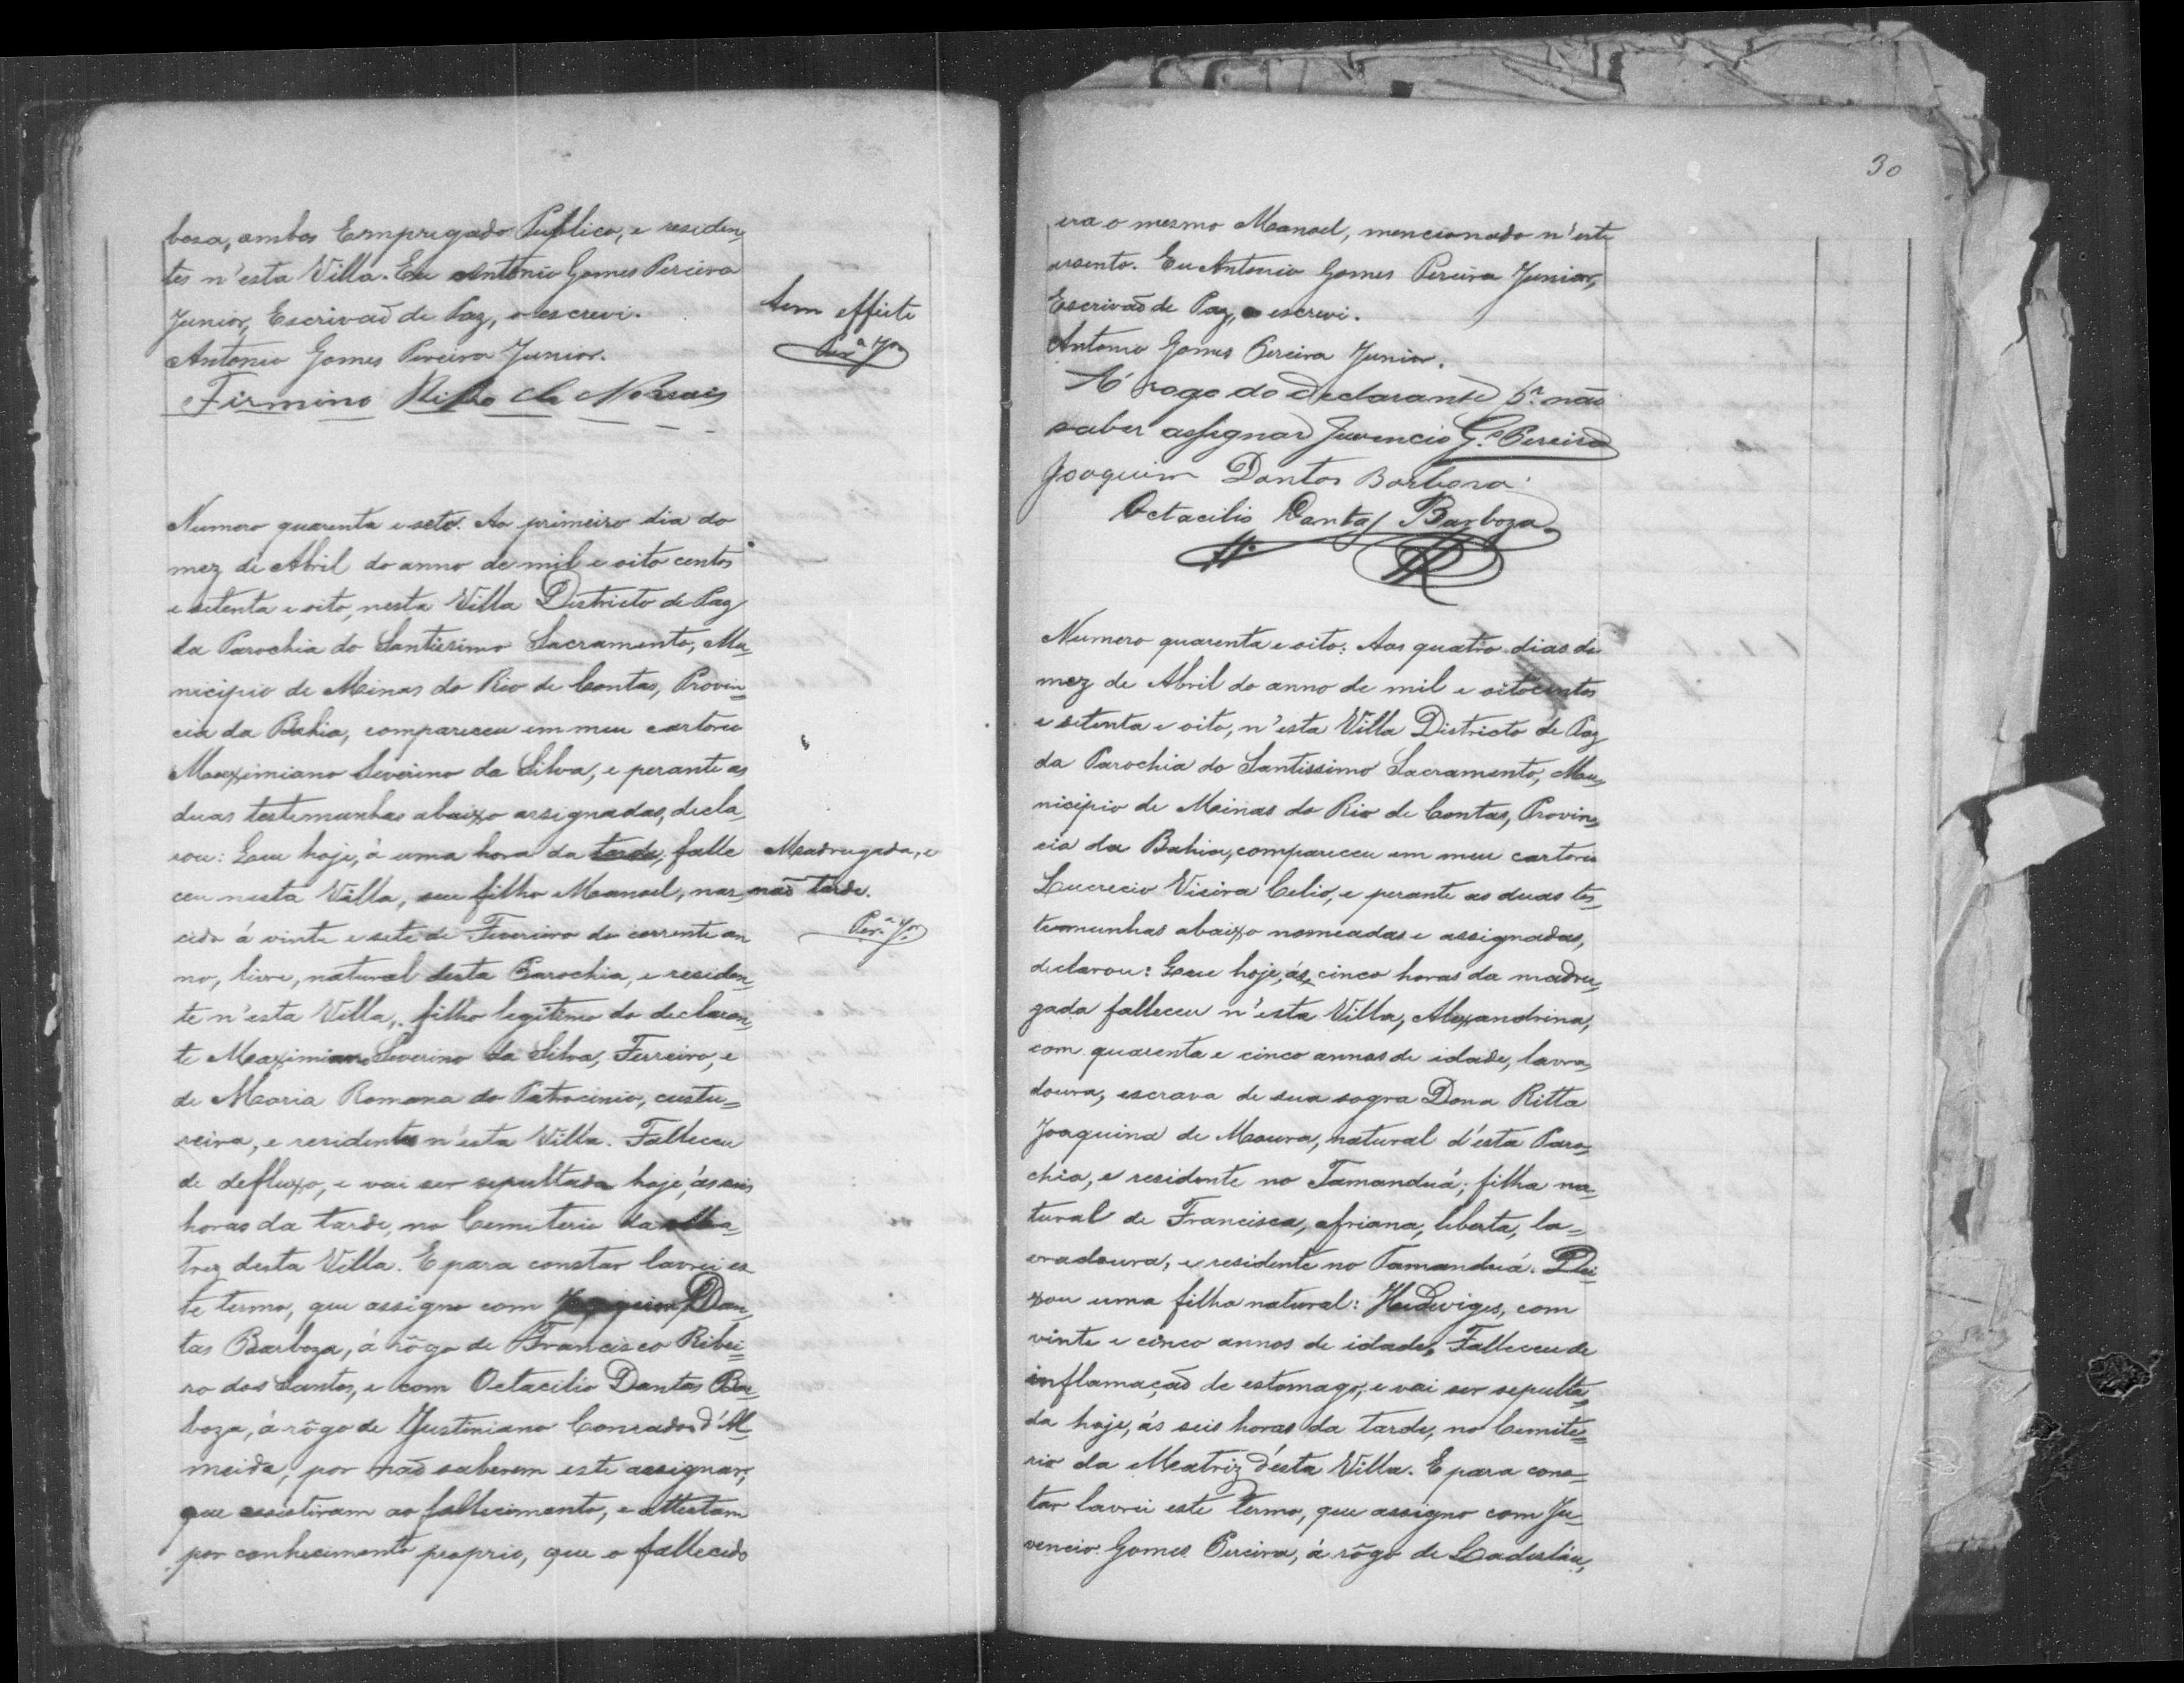 bosa, ambos Empregado Publico, e residen,
tes n'esta Villa. Eu Antonio Gomes Pereira
Junior, Escrivaõ de Paz, o escrevi.
Antonio Gomes Pereira Junior.
Firmino de Moraes
Sem effeito
Per.ª J.or
Numero quarenta e sete. Ao primeiro dia do
mez de Abril do anno de mil e oito centos
e setenta e oito, nesta Villa Districto de Paz
da Parochia do Santissimo Sacramento, Mu,
nicipio de Minas do Rio de Contas, Provin=
cia da Bahia, compareceu em meu cartorio
Maximiano Severino da Silva, e perante as
duas testemunhas abaixo assignadas, decla,
rou: Que hoje, á uma hora da tarde, falle
ceu nesta Villa, seu filho Manoel, nas,
cido á vinte e sete de Fevereiro do corrente an
no, livre, natural desta Parochia, e residen,
te n'esta Villa, filho legitimo do declaran,
te Maximiano Severino da Silva, Ferreiro, e
de Maria Romana do Patrocinio, custu=
reira, e residentes n'esta Villa. Falleceu
de defluxo, e vai ser sepultada hoje, ás seis
horas da tarde, no Cemiterio da Ma=
triz desta Villa. E para constar lavrei es
te termo, que assigno com Joaquim Dan,
tas Barboza, á rôgo de Francisco Ribei=
ro dos Santos, e com Octacilio Dantas Bar,
boza, á rôgo de Justiniano Conrado d'Al
meida, por naõ saberem este assignar,
que assistiram ao fallecimento, e attestam
por conhecimento proprio, que o fallecido
Madrugada, e
naõ tarde.
Per.ª J.or
30
era o mesmo Manoel, mencionado n'este
assento. Eu Antonio Gomes Pereira Junior,
Escrivaõ de Paz, o escrevi.
Antonio Gomes Pereira Junior.
A' rogo do declarante p.r não
saber assignar Juvencio G.s Pereira
Joaquim Dantas Barbosa.
Octacilio Dantas Barboza
Numero quarenta e oito: Aos quatro dias do
mez de Abril do anno de mil e oitocentos
e setenta e oito, n'esta Villa Districto de Paz
da Parochia do Santissimo Sacramento, Mu,
nicipio de Minas do Rio de Contas, Provin,
cia da Bahia, compareceu em meu cartorio
Lucrecio Vieira Celio, e perante as duas tes,
temunhas abaixo nomeadas e assignadas,
declarou: Que hoje, ás cinco horas da madru,
gada falleceu n'esta Villa, Alexandrina,
com quarenta e cinco annos de idade, lavra,
doura, escrava de sua sogra Dona Ritta
Joaquina de Moura, natural d'esta Paro,
chia, e residente no Tamanduá; filha na,
tural de Francisca, afriana, liberta, la=
vradoura, e residente no Tamanduá. Dei
xou uma filha natural: Hedwiges, com
vinte e cinco annos de idade. Falleceu de
inflamaçaõ de estomago, e vai ser sepulta,
da hoje, ás seis horas da tarde, no Cemite=
rio da Matriz d'esta Villa. E para cons=
tar lavrei este termo, que assigno com Ju
vencio Gomes Pereira, á rôgo de Ladisláu,